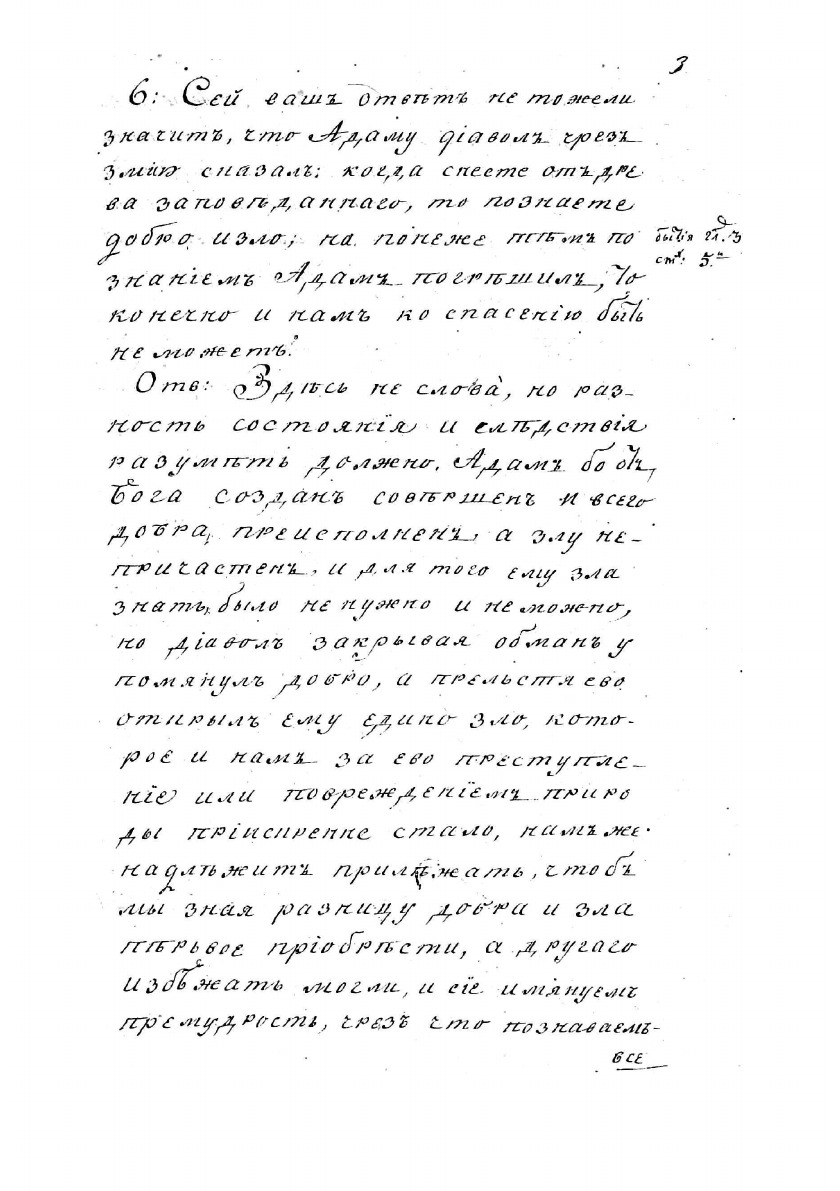 3
6: Сей вашъ отвѣтъ не тожели
значитъ, что Адаму діаволъ чрезъ
змию сказалъ: когда снеете отъ дре
ва заповѣданнаго, то познаете
добро изло; на понеже тѣмъ по
бытія гл. 3
ст: 5.
знаніемъ Адамъ погрѣшилъ, то
конечно и намъ ко спасенію быть
не можетъ.
Отв: Здѣсь не слова, но раз-
ность состоянія и слѣдствія
разумѣть должно. Адамъ бо отъ
Бога созданъ совѣршенъ и всего
добра, преисполненъ, а злу не-
причастенъ, и для того ему зла
знать, было не нужно и неможно,
но діаволъ закрывая обманъ у
помянулъ добро, а прельстя ево
открылъ ему едино зло, кото-
рое и намъ за ево преступле-
ніе или поврежденіемъ приро
ды пріискренне стало, намъ же
надлѣжитъ прилѣжать, чтобъ
мы зная разницу добра и зла
пѣрьвое пріобрѣсти, а другаго
избѣжать могли, и сіе имянуемъ
премудрость, чрезъ что познаваемъ-
все